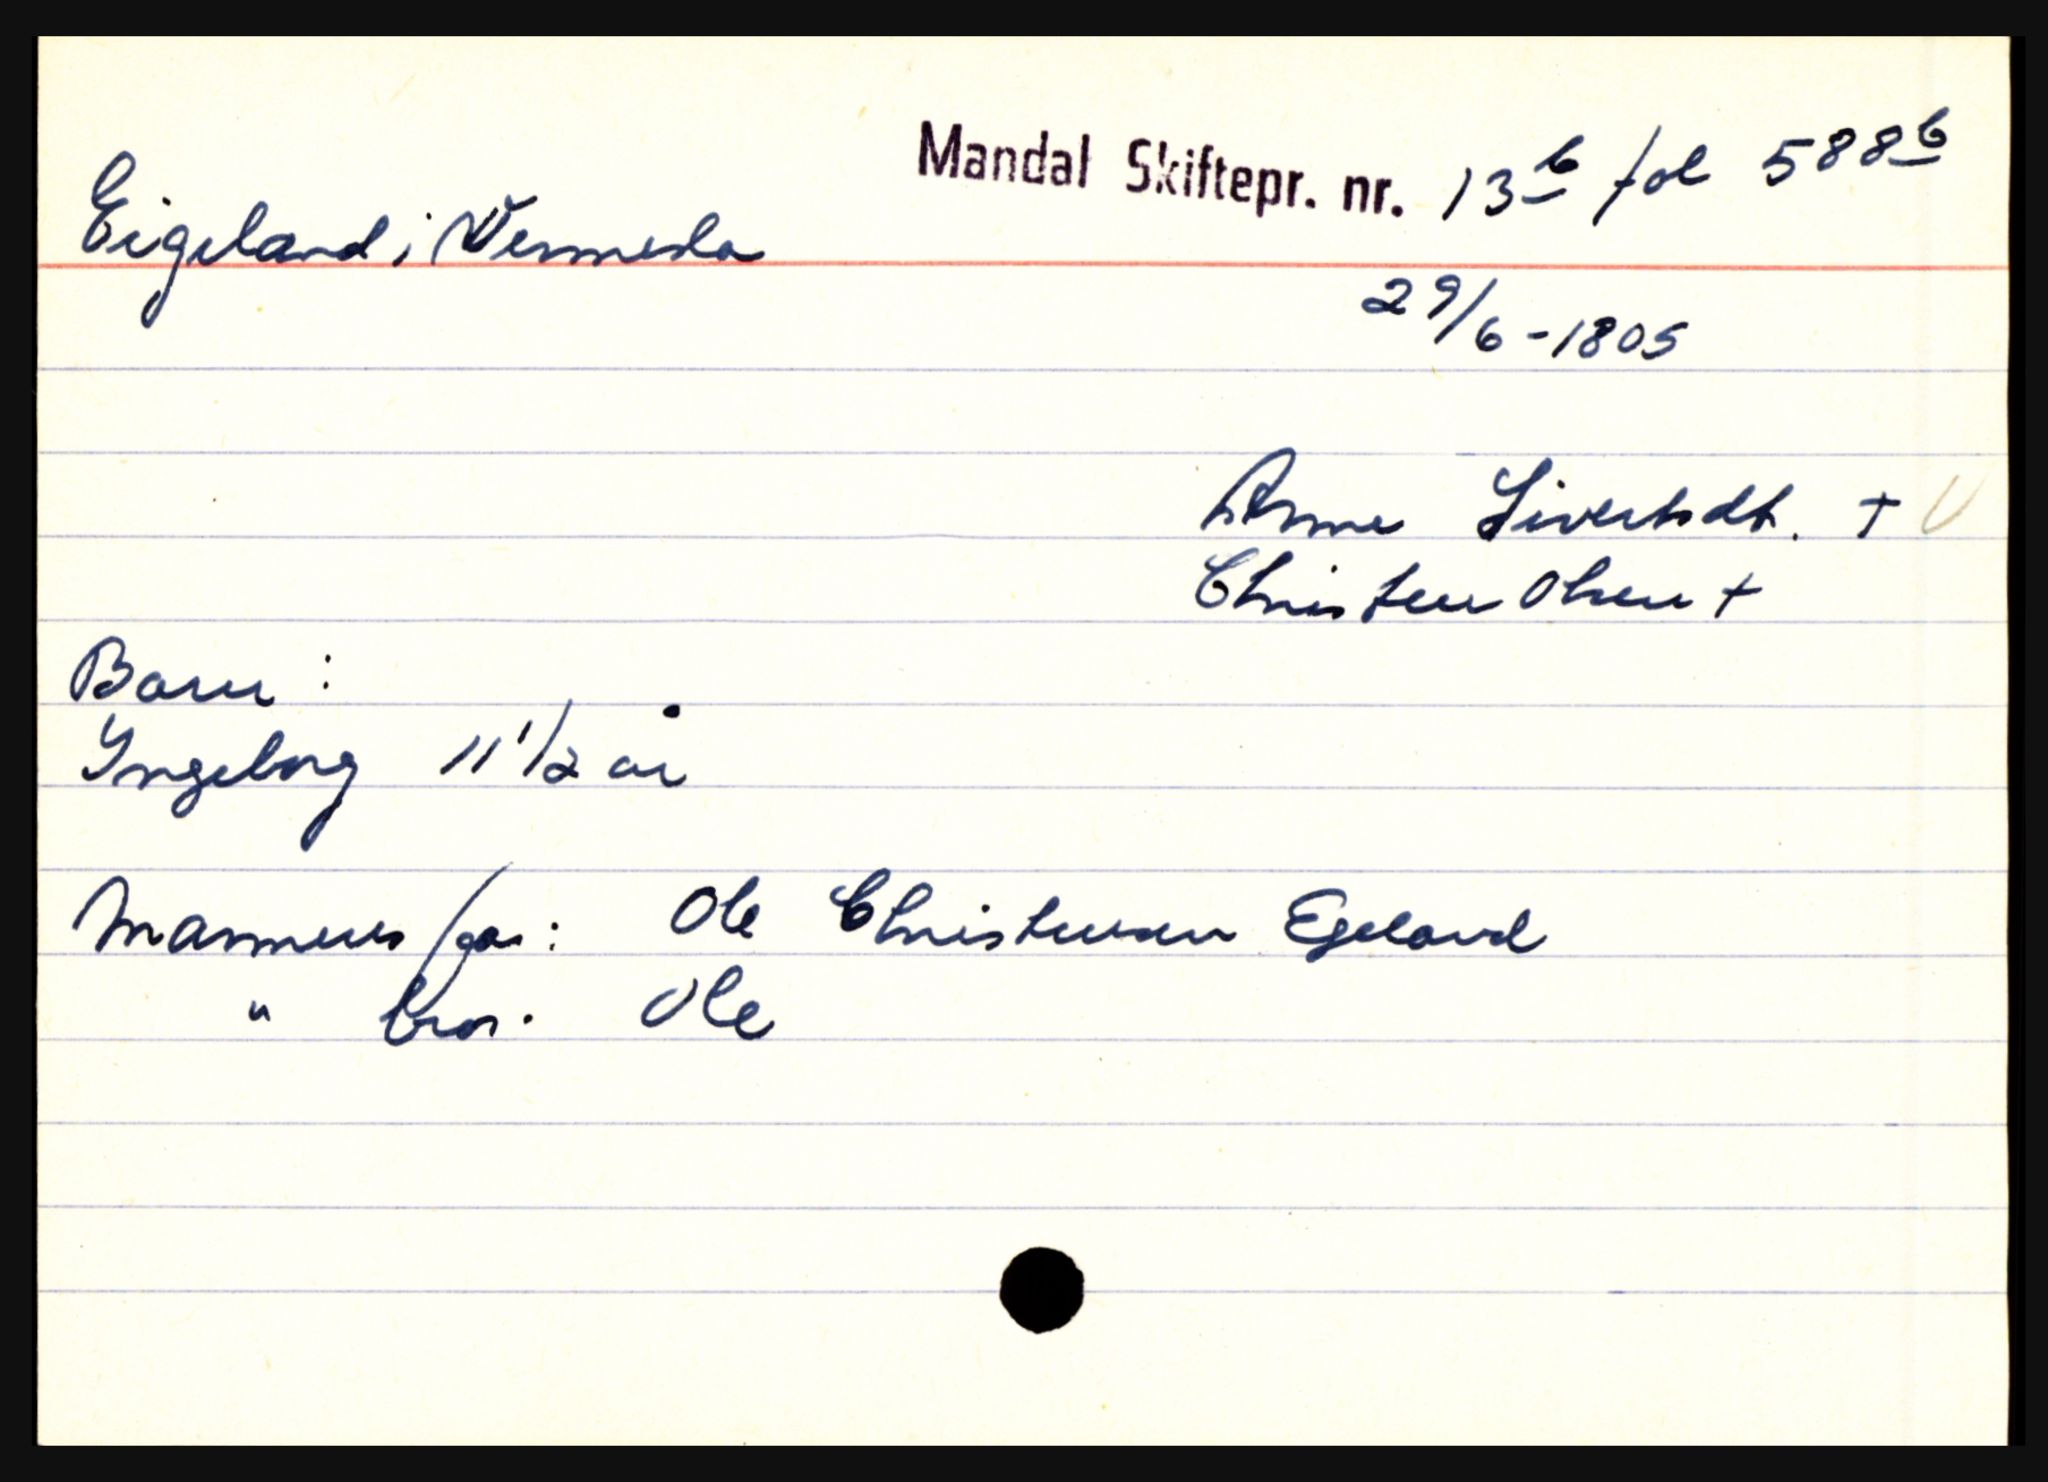 Mandal Skiftepr. nr. 13b fol 588b
Eigeland i Vennesla
29/6 - 1805
Anne Sivertsdt. +
Christen Olsen +
Barn :
Ingeborg 11 1/2 år
Mannens far: Ole Christensen Egeland
" bror. Ole